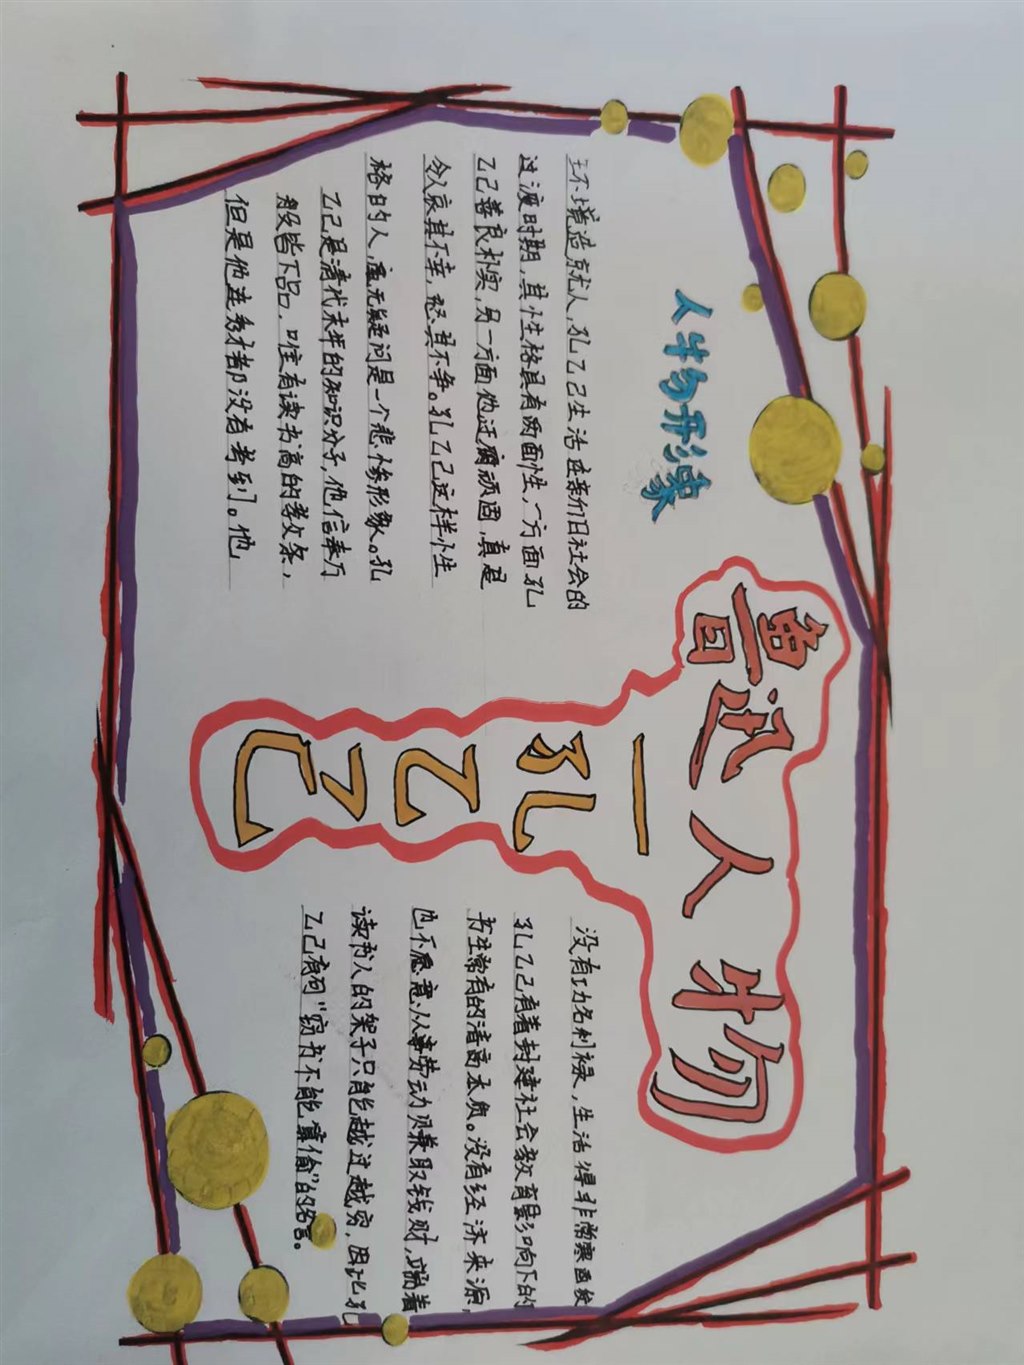 鲁迅人物
一
孔乙己
人物形象
环境造就人,孔乙己生活在新旧社会的
过渡时期,其性格具有两面性,一方面孔
乙己善良朴实,另一方面他迂腐顽固,真是
令人哀其不幸,怒其不争。孔乙己这样性
格的人,毫无疑问是一个悲惨形象。孔
乙己是清代末年的知识分子,他信奉万
般皆下品,唯有读书高的教条,
但是他连秀才都没有考到。他
没有功名利禄,生活得非常寒酸
孔乙己有着封建社会教育影响下的
书生常有的清高本质。没有经济来源,
也不愿意从事劳动获取钱财,端着
读书人的架子只能越过越穷,因此孔
乙己有句“窃书不能算偷”的名言。